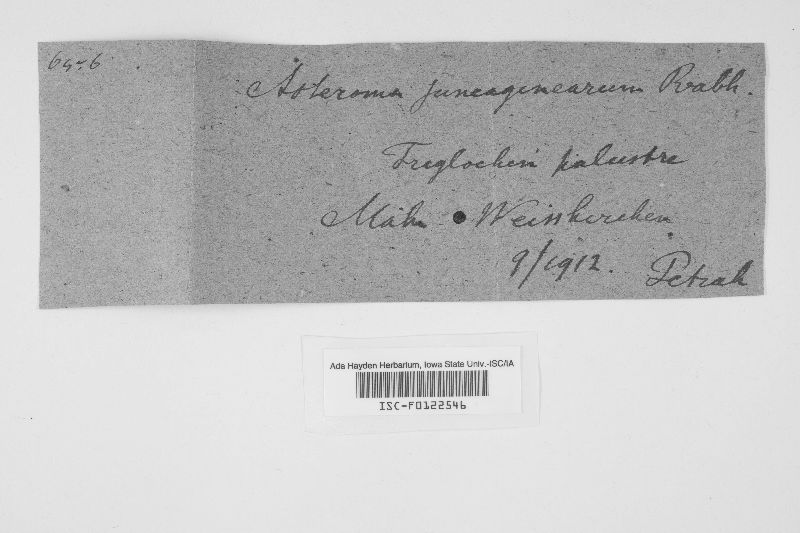 69-6
Asteroma juncaginearum Rabh.
Triglochin palustre
Mähr. Weisskirchen
9/1912.
Petrak
Ada Hayden Herbarium, Iowa State Univ.-ISC/IA
ISC-F0122546